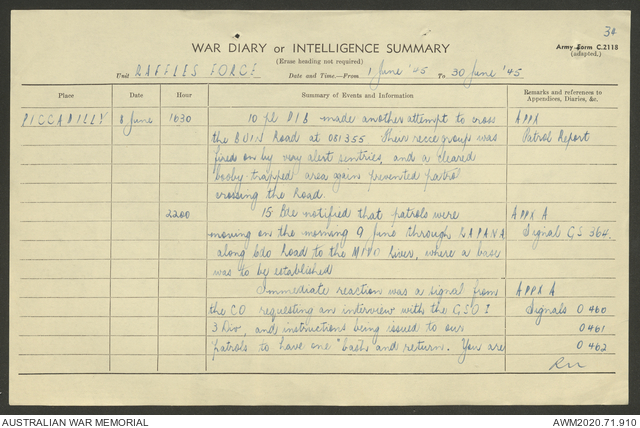 3a
WAR DIARY or INTELLIGENCE SUMMARY
Army Form C.2118
(adapted.)
(Erase heading not required)
Unit RAFFLES FORCE Date and Time.—From 1 June '45 To 30 June '45
Place Date Hour Summary of Events and Information Remarks and references to
Appendices, Diaries, &c.
PICCADILLY 8 June 1630 10 pl PIB made another attempt to cross APPX
the BUIN Road at 081355. Their recce group was Patrol Report
fired on by very alert sentries, and a cleared
booby-trapped area again prevented patrol
crossing the Road.
2200 15 Bde notified that patrols were APPX A
moving on the morning 9 June through Signal GS 364.
along Road to the MIVO River, where a base
was to be established
Immediate reaction was a signal from APPX A
the CO requesting an interview with the GSO I Signals O 460
3 Div, and instructions being issued to our O 461
patrols to have one "bash" and return. You are O 462
AUSTRALIAN WAR MEMORIAL AWM2020.71.910